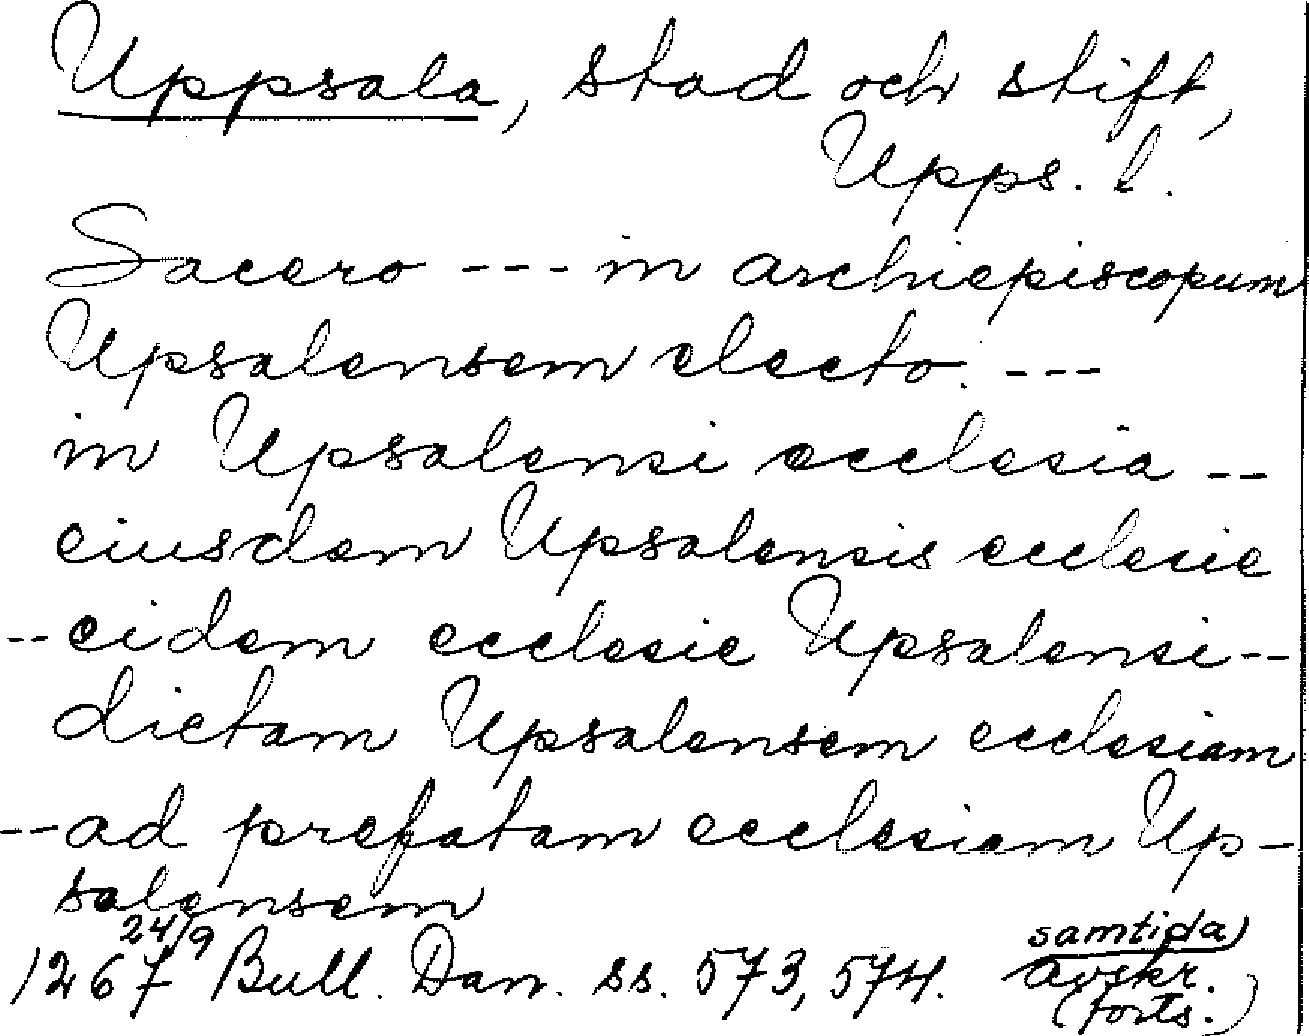 Uppsala, stad och stift,
Upps. l.
Sacero --- in archiepiscopum
Upsalensem electo. ---
in Upsalensi ecclesia --
eiusdem Upsalensis ecclesie
-- eidem ecclesie Upsalensi --
dictam Upsalensem ecclesiam
-- ad prefatam ecclesiam Up-
salensem
24/9
1267 Bull. Dan. ss. 573, 574.
samtida)
avskr.
(forts.)